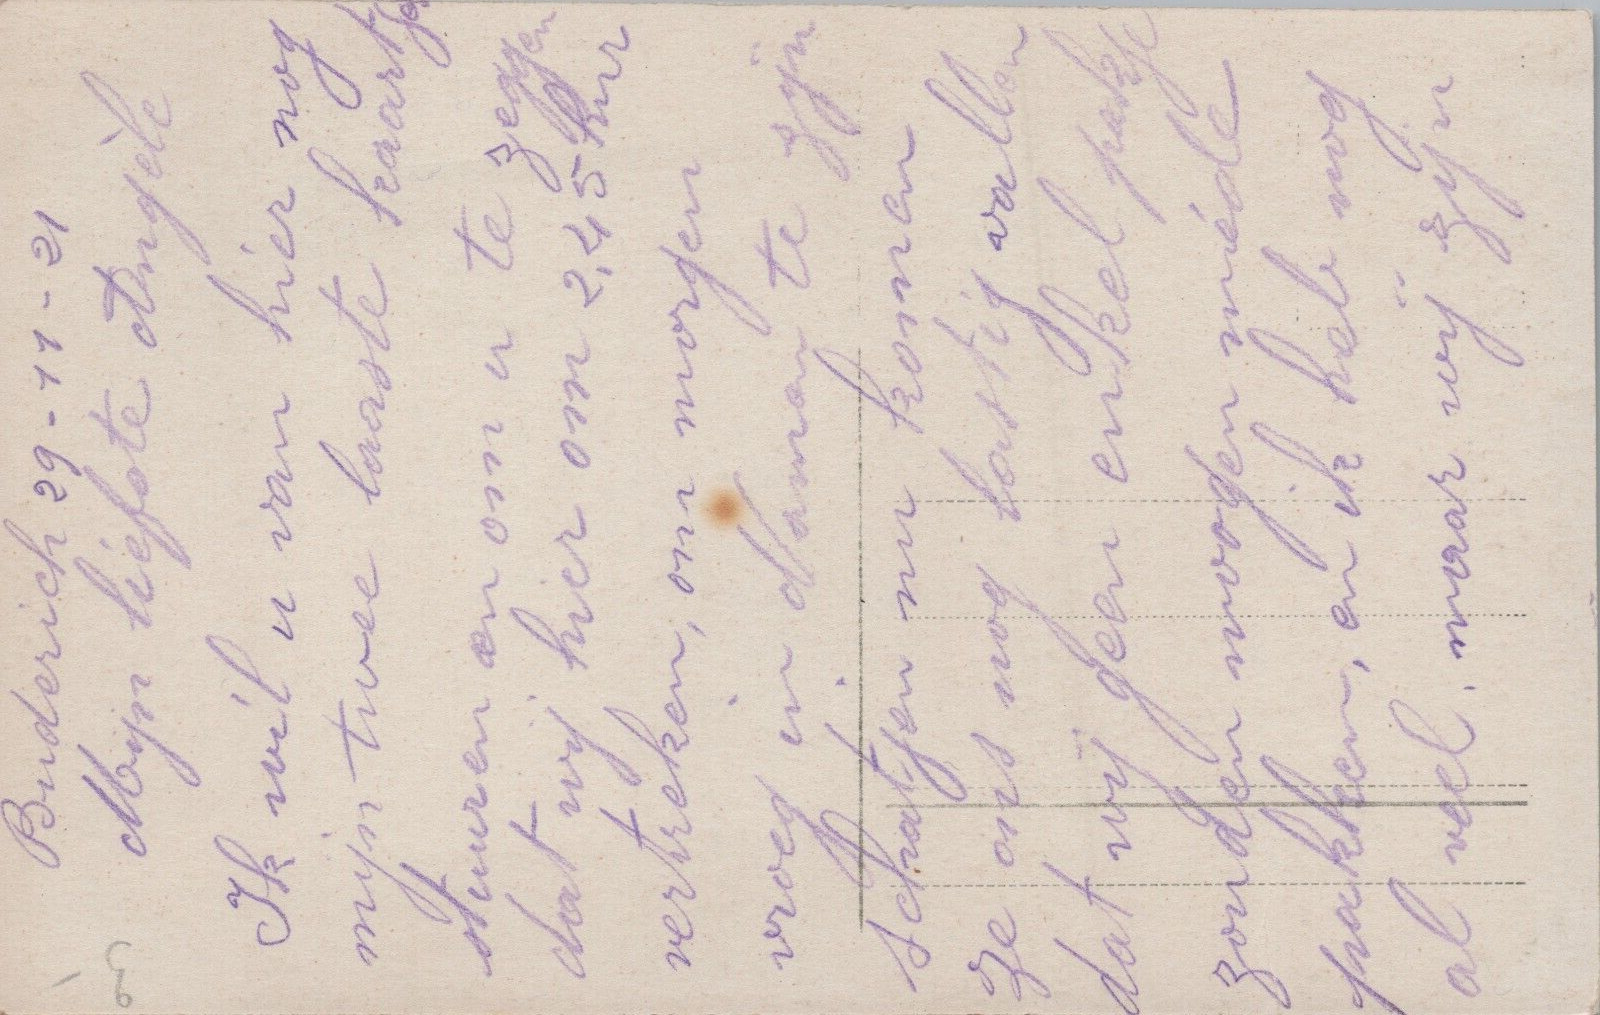 Buderich 29-11-21
Mijn liefste Angèle
Ik wil u van hier nog
mijn twee laaste kaartjes
sturen en om u te zegen
dat wij hier om 2,45 hur
vertreken, om morgen
vroeg in damon te zijn
schatjen nu komen
ze ons nog lastig vallen
dat wij geen enkel pakje
zouden mogen méde
pakken, en ik heb nog
al veel. maar wij zijn